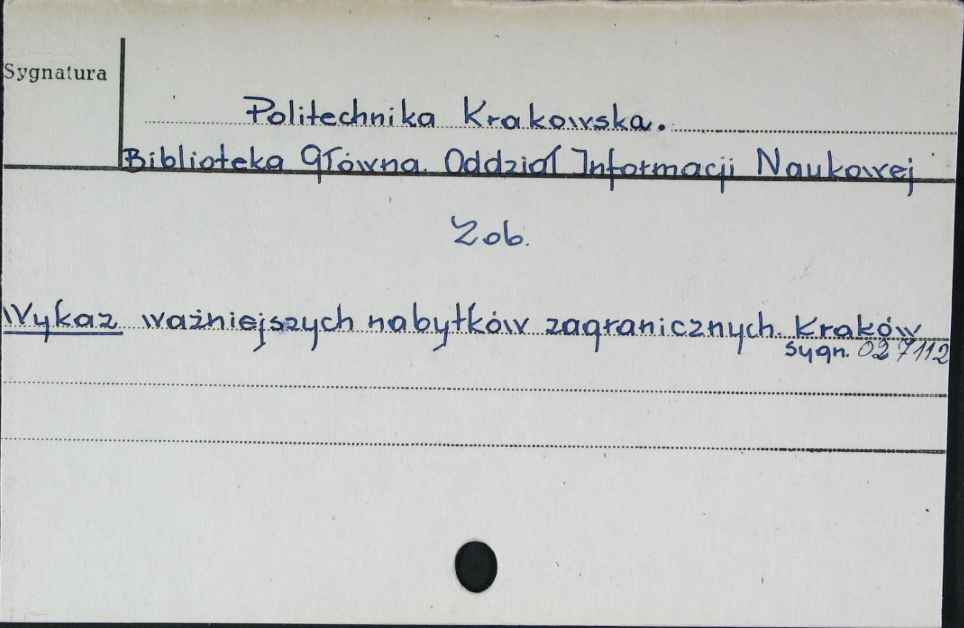 Sygnatura
Politechnika Krakowska.
Biblioteka Główna. Oddział Informacji Naukowej
Zob.
Wykaz ważniejszych nabytków zagranicznych. Kraków
Sygn. 027112